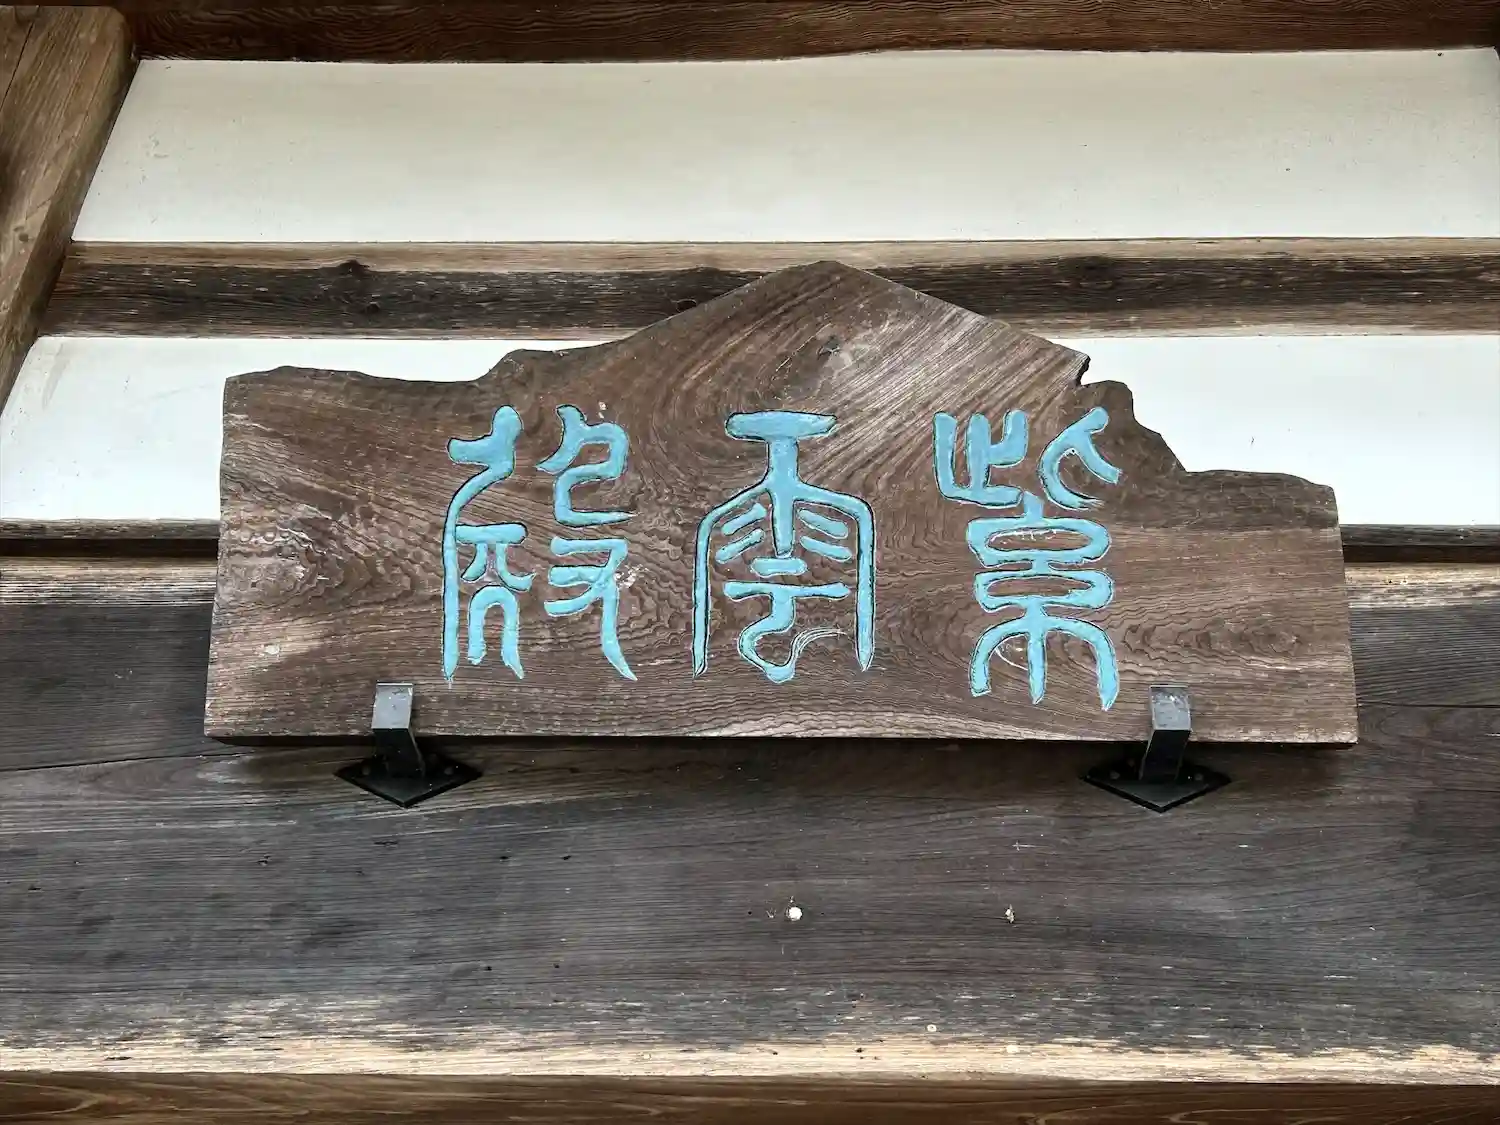 紫雲殿